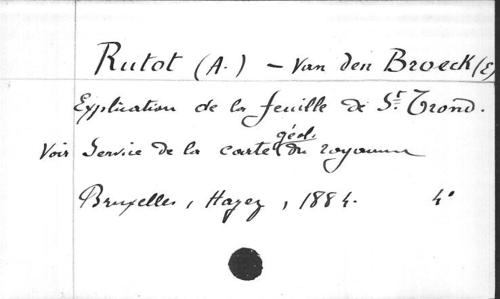 Rutot (A.) – Van den Broeck (E)
Explication de la feuille de St. Trond.
Voir Service de la carte géol. du royaume
Bruxelles, Hayez, 1884. 4°